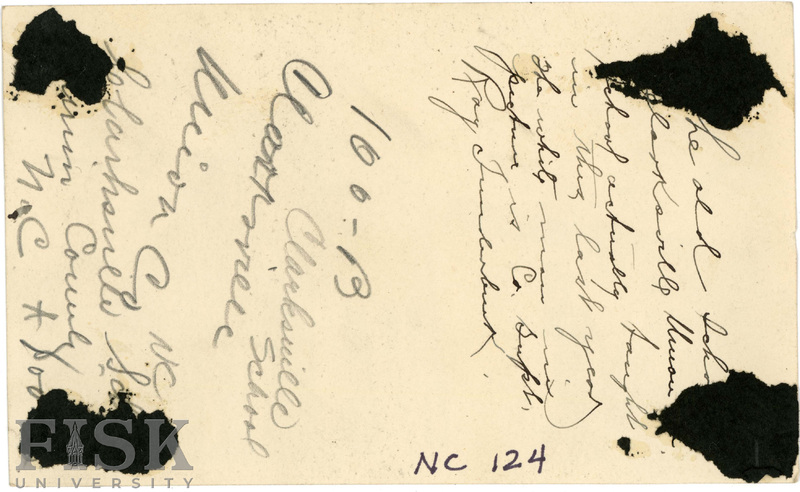 he old Scho
Clarksville Union
School actually taught
in this last year
The white man in
picture is Co. Supt.
Ray Funderburk.
160-13
Clarksville
School
Clarksville
Union Co NC
Clarksville Sch
County
N.C
NC 124
FISK
UNIVERSITY